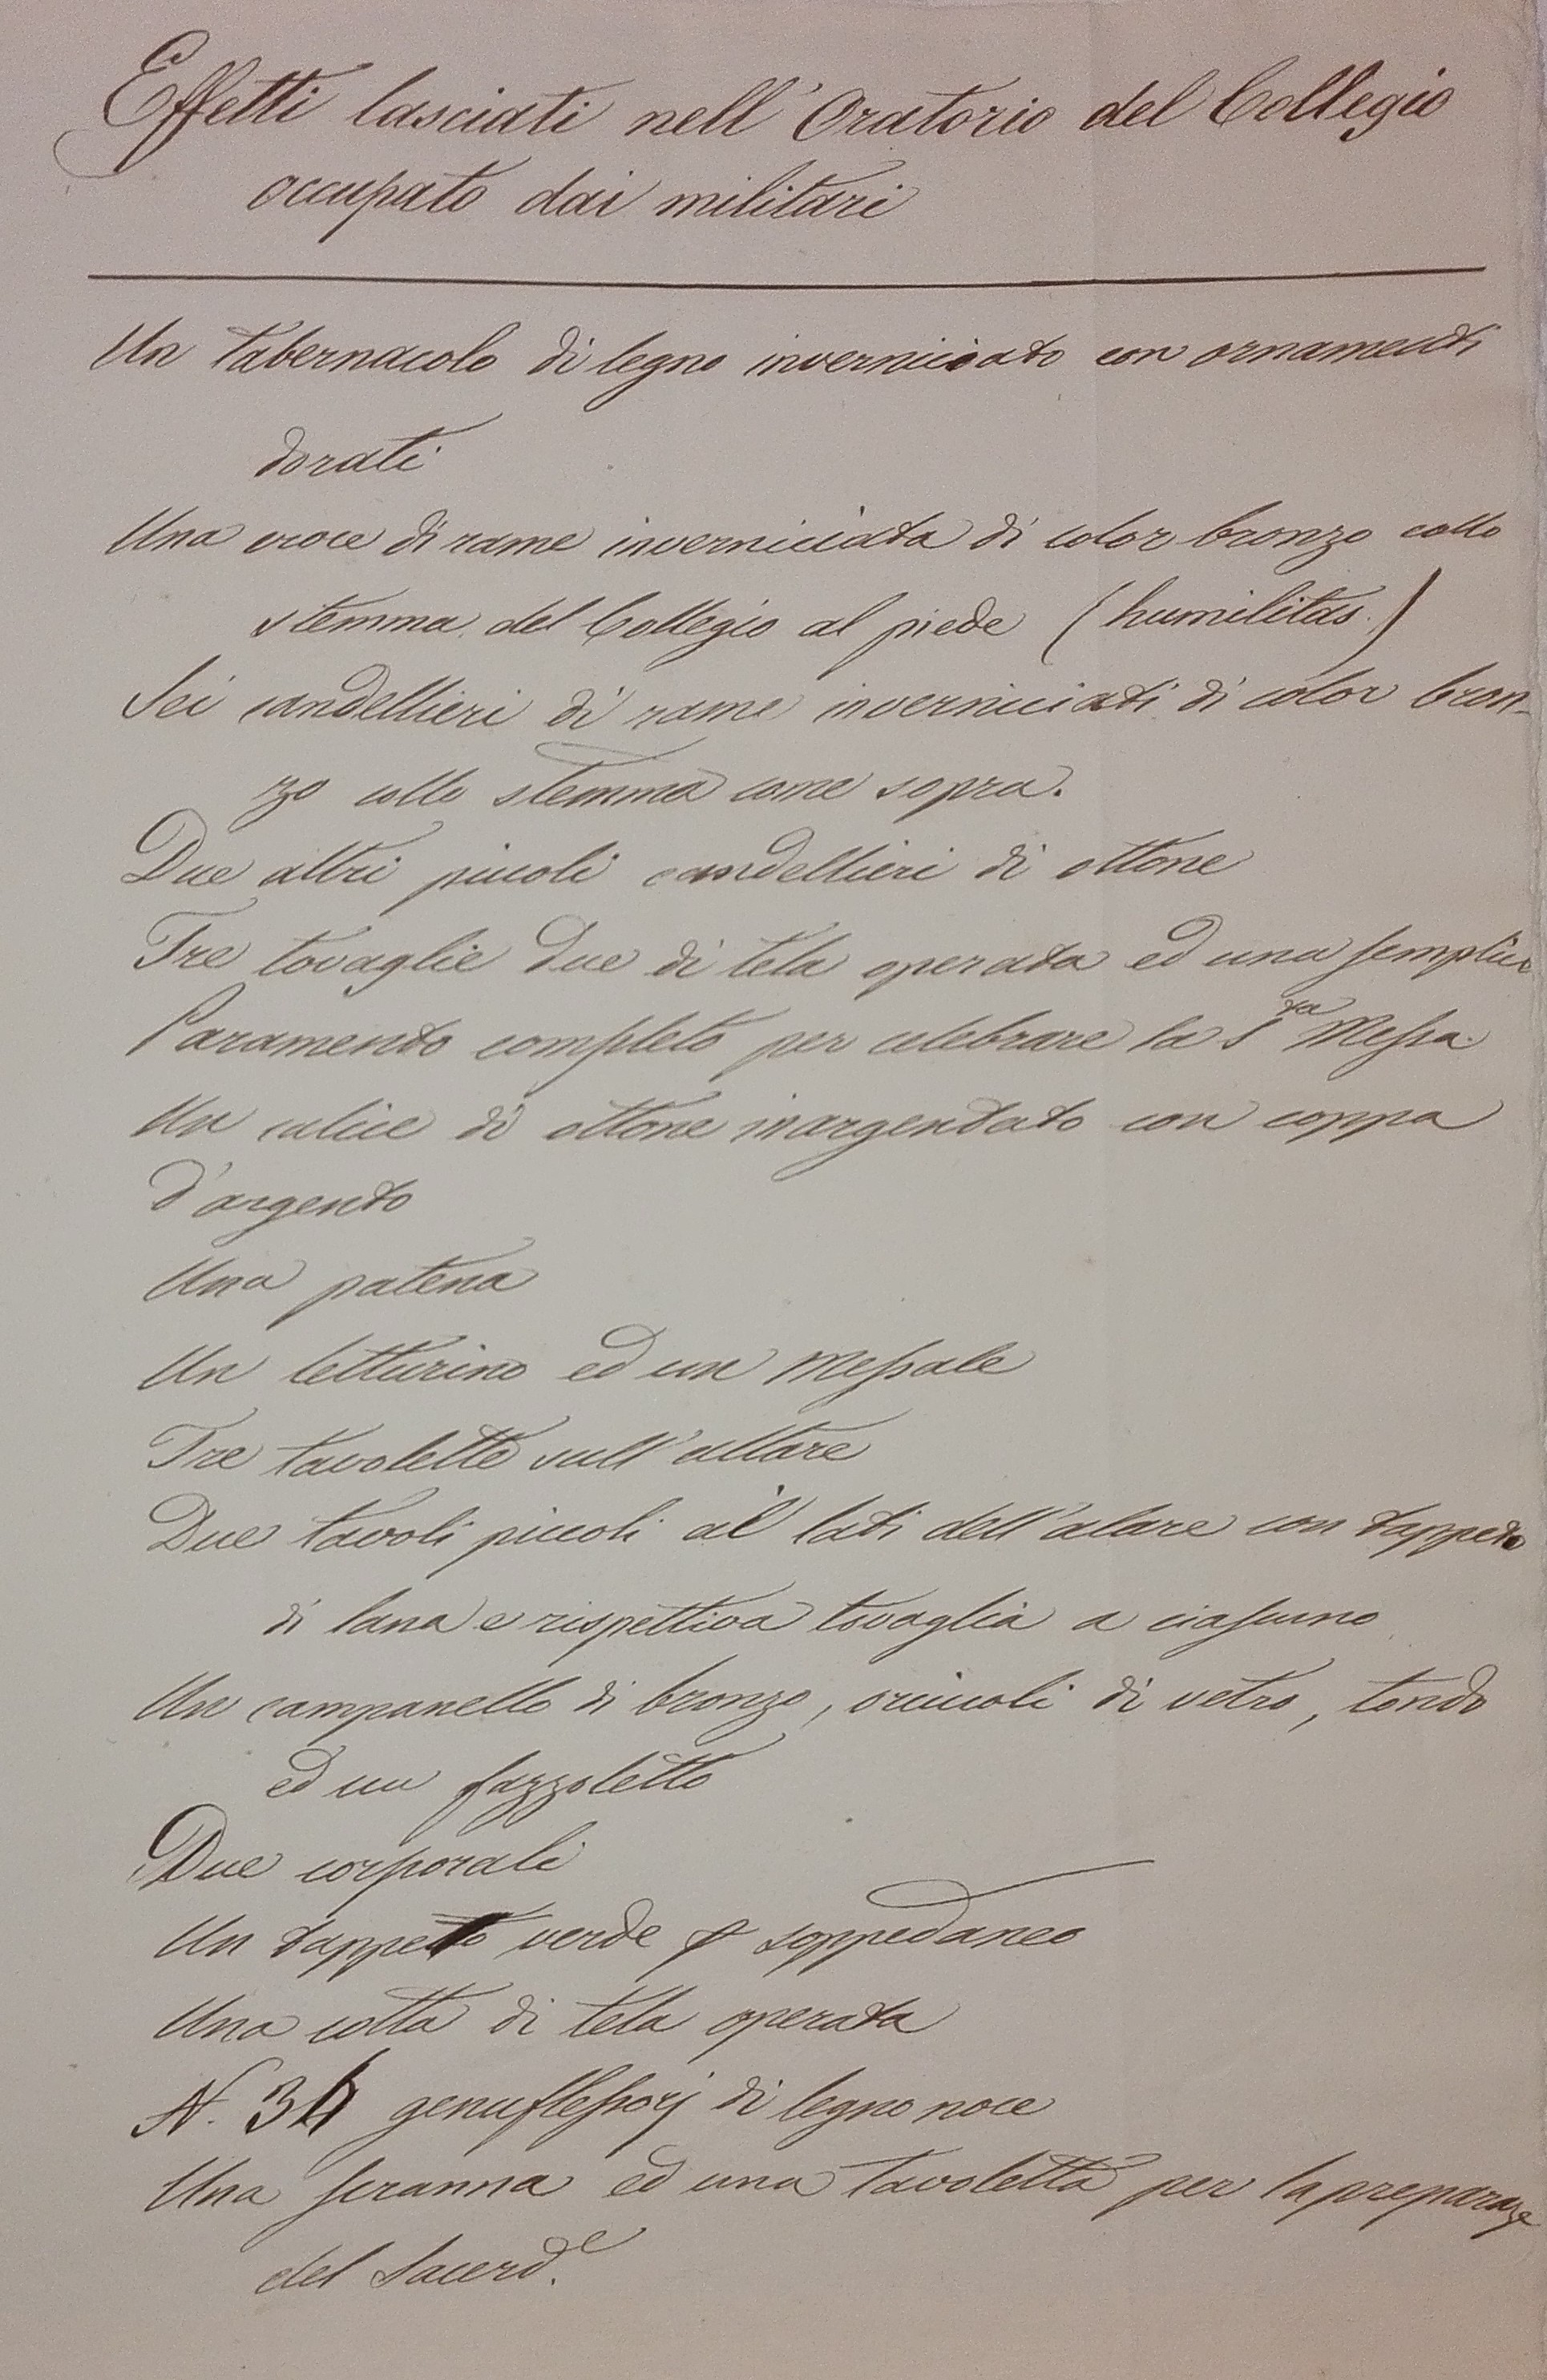 Effetti lasciati nell'Oratorio del Collegio
occupato dai militari
Un tabernacolo di legno inverniciato con ornamenti
dorati
Una croce di rame inverniciata di color bronzo collo
stemma del Collegio al piede (humilitas.)
Sei candellieri di rame inverniciati di color bron-
zo collo stemma come sopra.
Due altri piccoli candellieri di ottone
Tre tovaglie due di tela operata ed una semplice
Paramento completo per celebrare la S.ta Messa
Un calice di ottone inargentato con coppa
d'argento
Una patena
Un letturino ed un Messale
Tre tavolette sull'altare
Due tavoli piccoli ai lati dell'alare con tappeto
di lana e rispettiva tovaglia a ciascuno
Un campanello di bronzo, orciuoli di vetro, tondo
ed un fazzoletto
Due corporali
Un tappeto verde p soppedaneo
Una cotta di tela operata
N. 34 genuflessorj di legno noce
Una scranna ed una tavoletta per la preparaze
del Sacerd.e